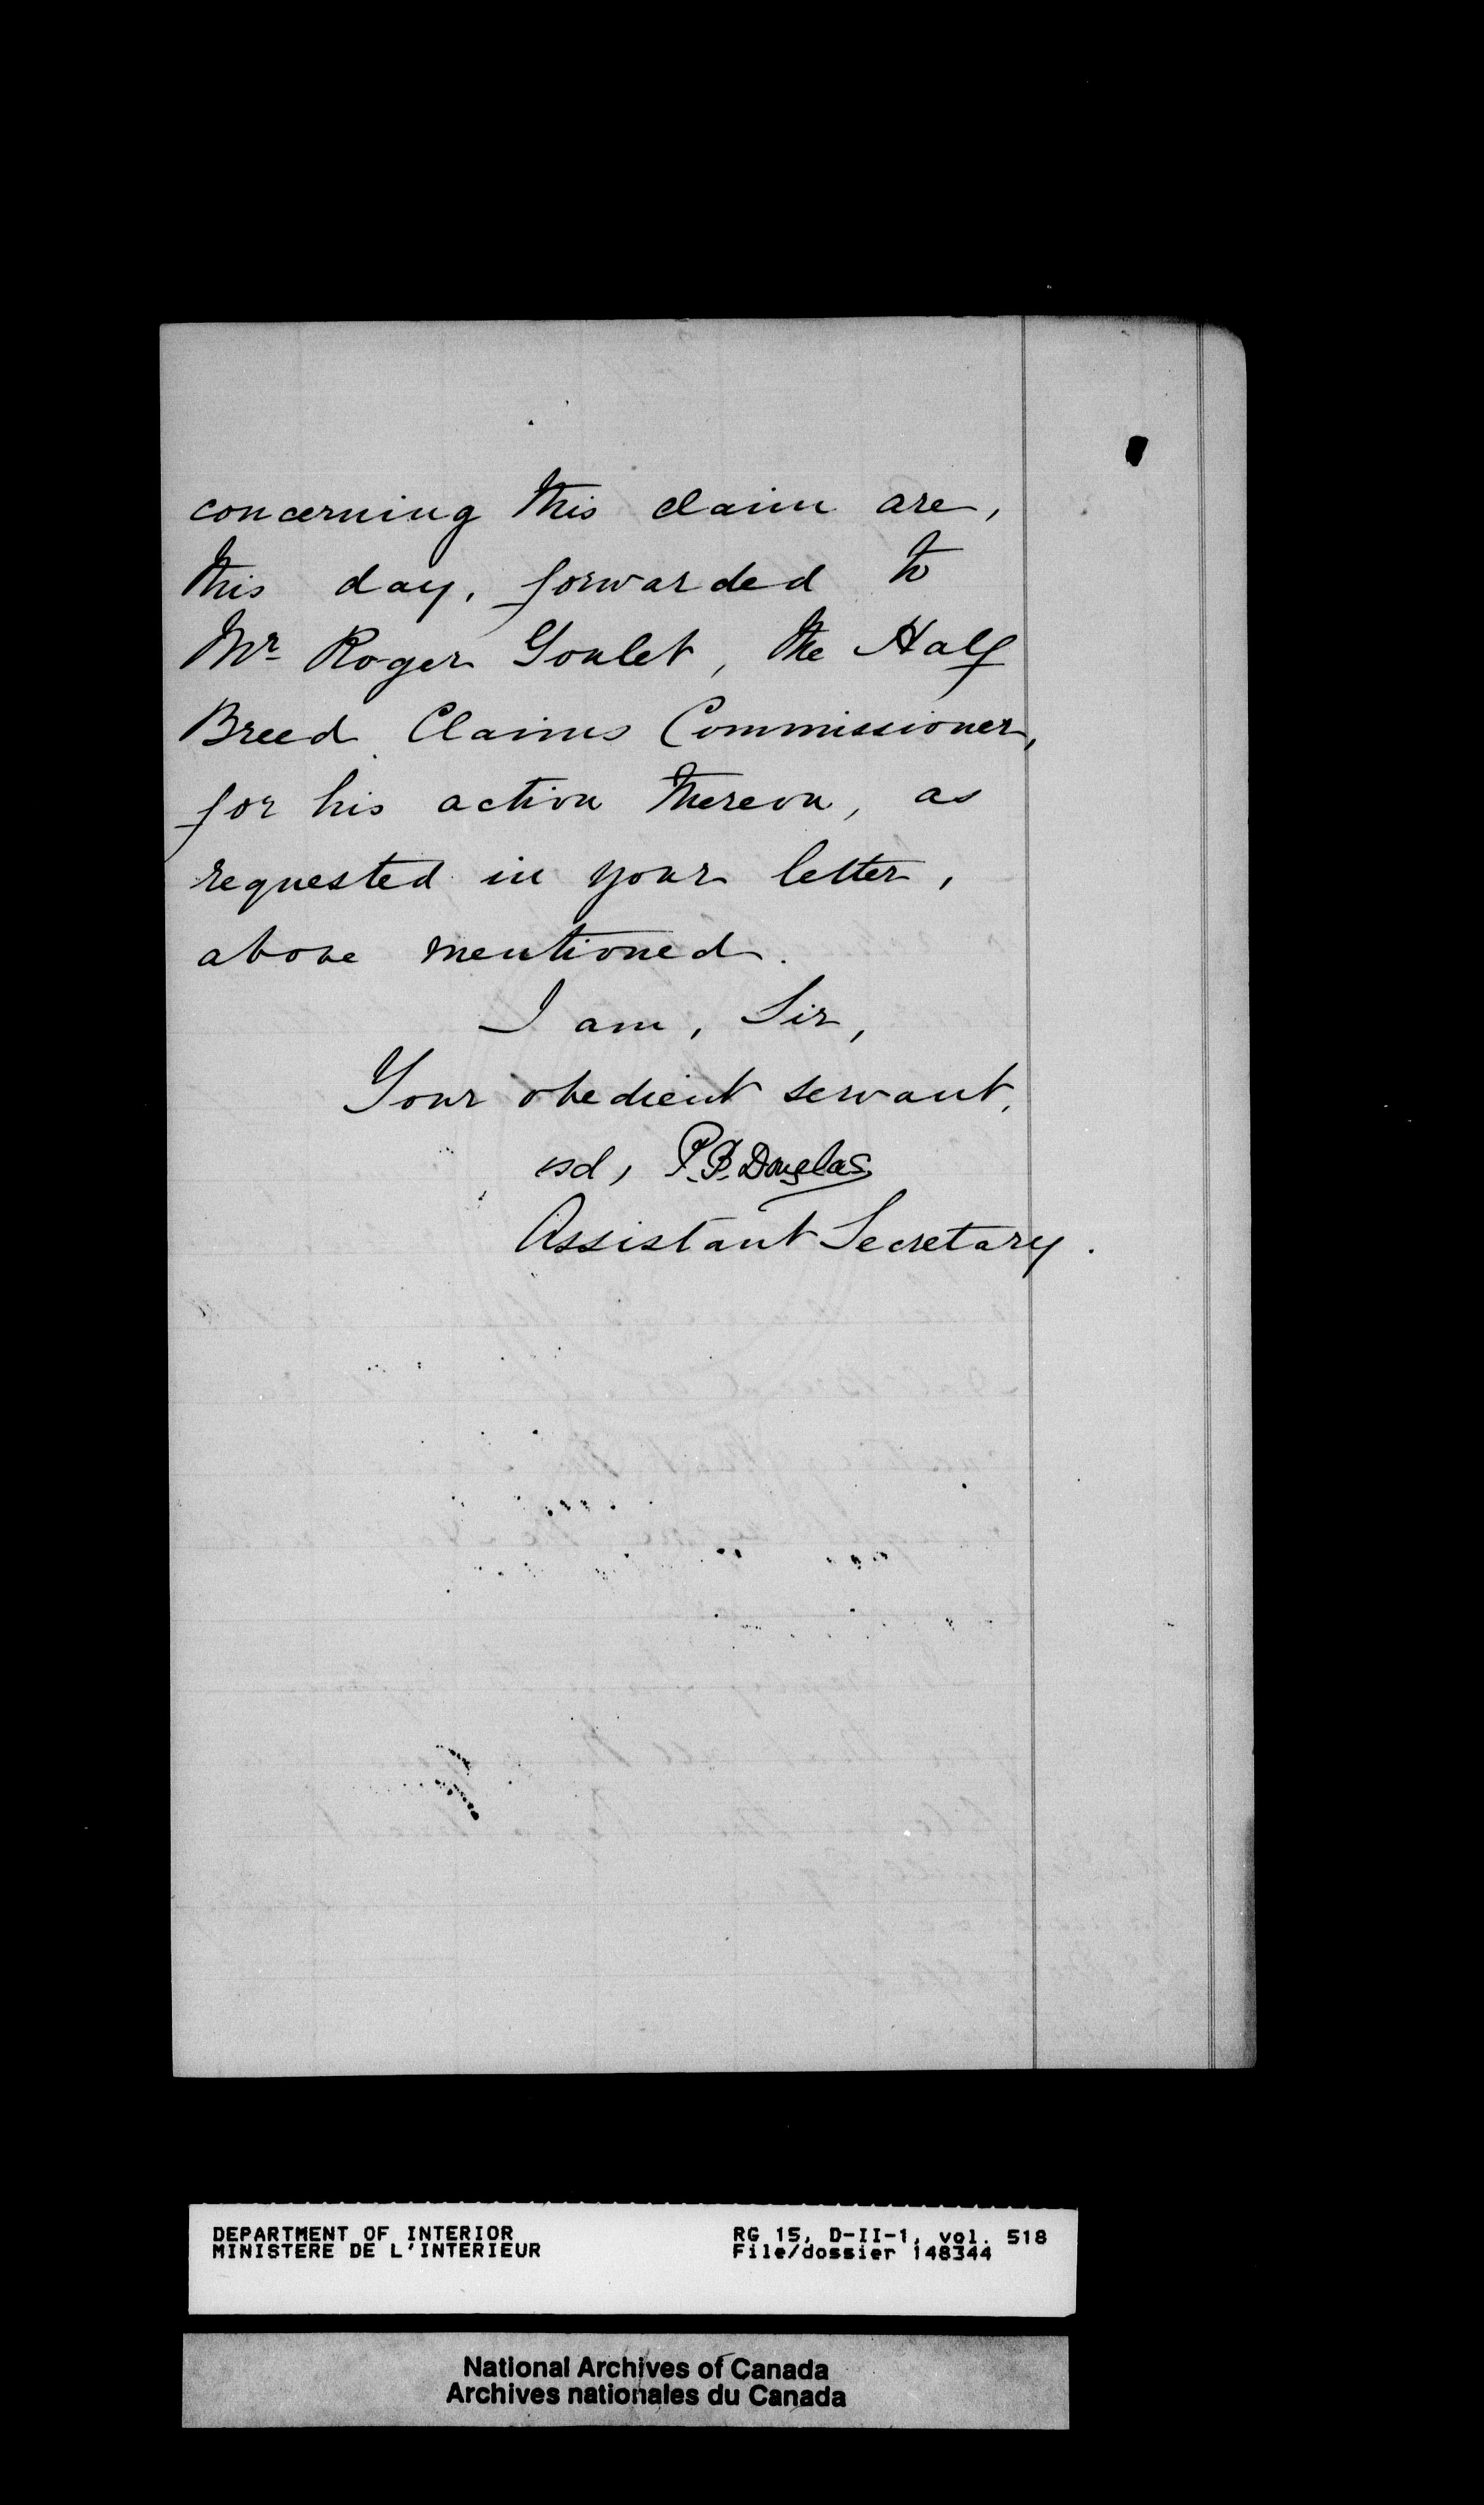 concerning this claim are,
this day, forwarded to
Mr Roger Goulet, the Half
Breed Claims Commissioner,
for his action thereon, as
requested in your letter,
above mentioned.
I am, Sir,
Your obedient servant,
sd, P. B. Douglas
Assistant Secretary.
DEPARTMENT OF INTERIOR
MINISTERE DE L'INTERIEUR
RG 15, D-II-1, vol. 518
File/dossier 148344
National Archives of Canada
Archives nationales du Canada